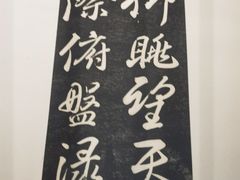 仰眺望天
際俯盤渌